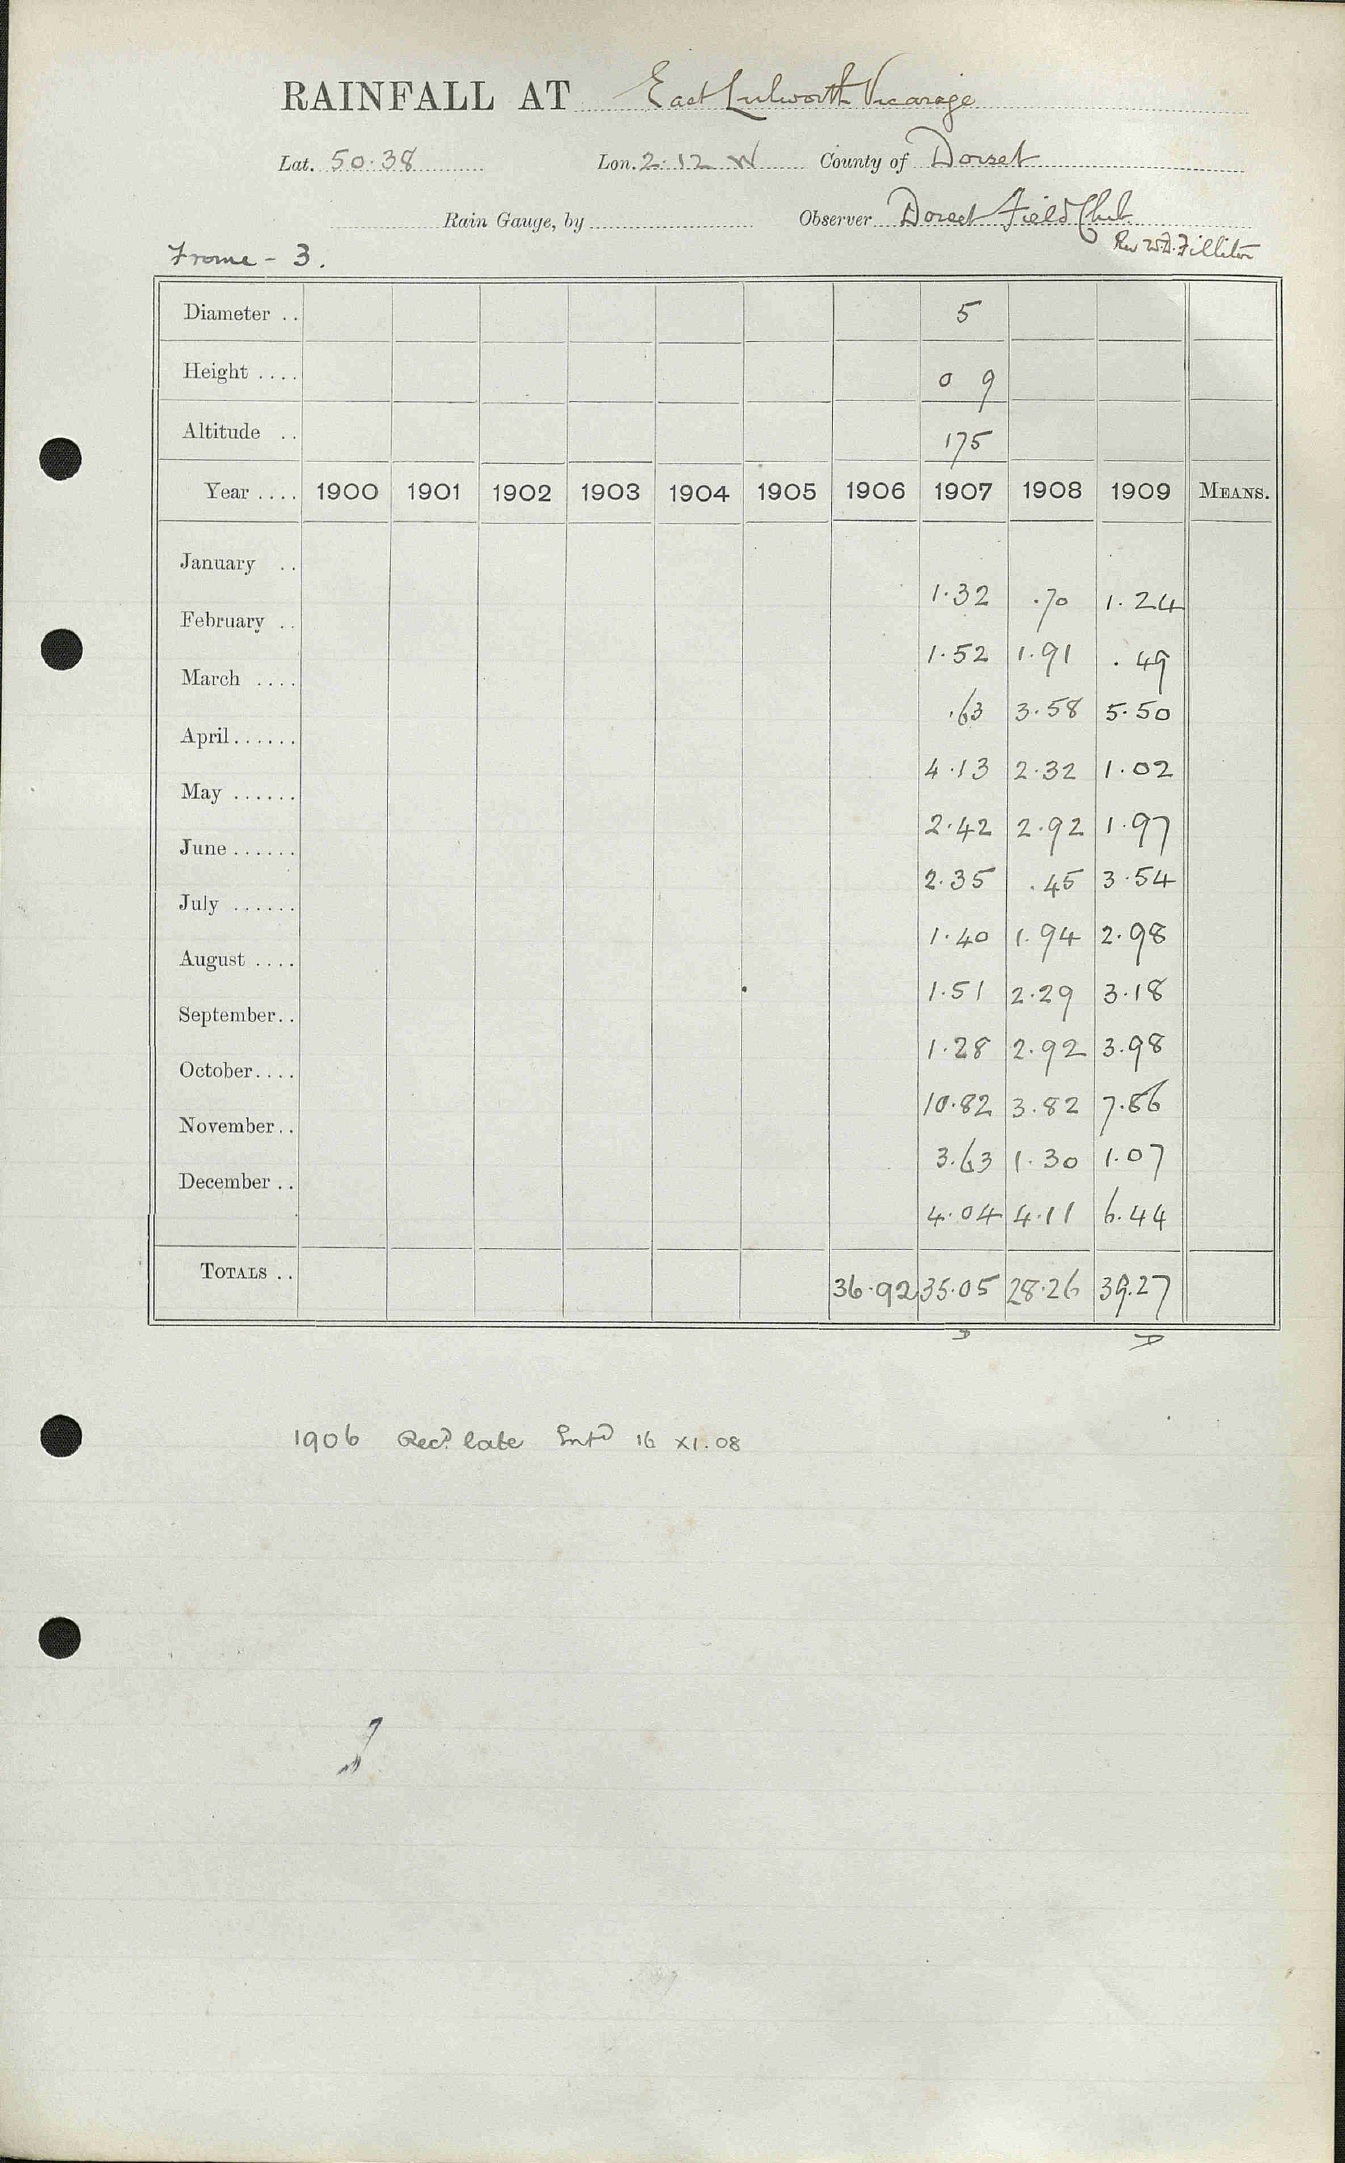 RAINFALL AT East Lulworth Vicarage
Lat. 50.38 Lon. 2.12 W County of Dorset
Rain Gauge, by Observer Dorset Field Club
Frome - 3. Rev W.D. Filliter
Diameter .. 5
Height .... 0 9
Altitude .. 175
Year .... 1900 1901 1902 1903 1904 1905 1906 1907 1908 1909 MEANS.
January ..
1.32 .70 1.24
February ..
1.52 1.91 .49
March ....
.63 3.58 5.50
April ......
4.13 2.32 1.02
May ......
2.42 2.92 1.97
June ......
2.35 .45 3.54
July ......
1.40 1.94 2.98
August ....
1.51 2.29 3.18
September..
1.28 2.92 3.98
October....
10.82 3.82 7.86
November..
3.63 1.30 1.07
December ..
4.04 4.11 6.44
TOTALS .. 36.92 35.05 28.26 39.27
D D
1906 Recd late Entd 16 XI.08